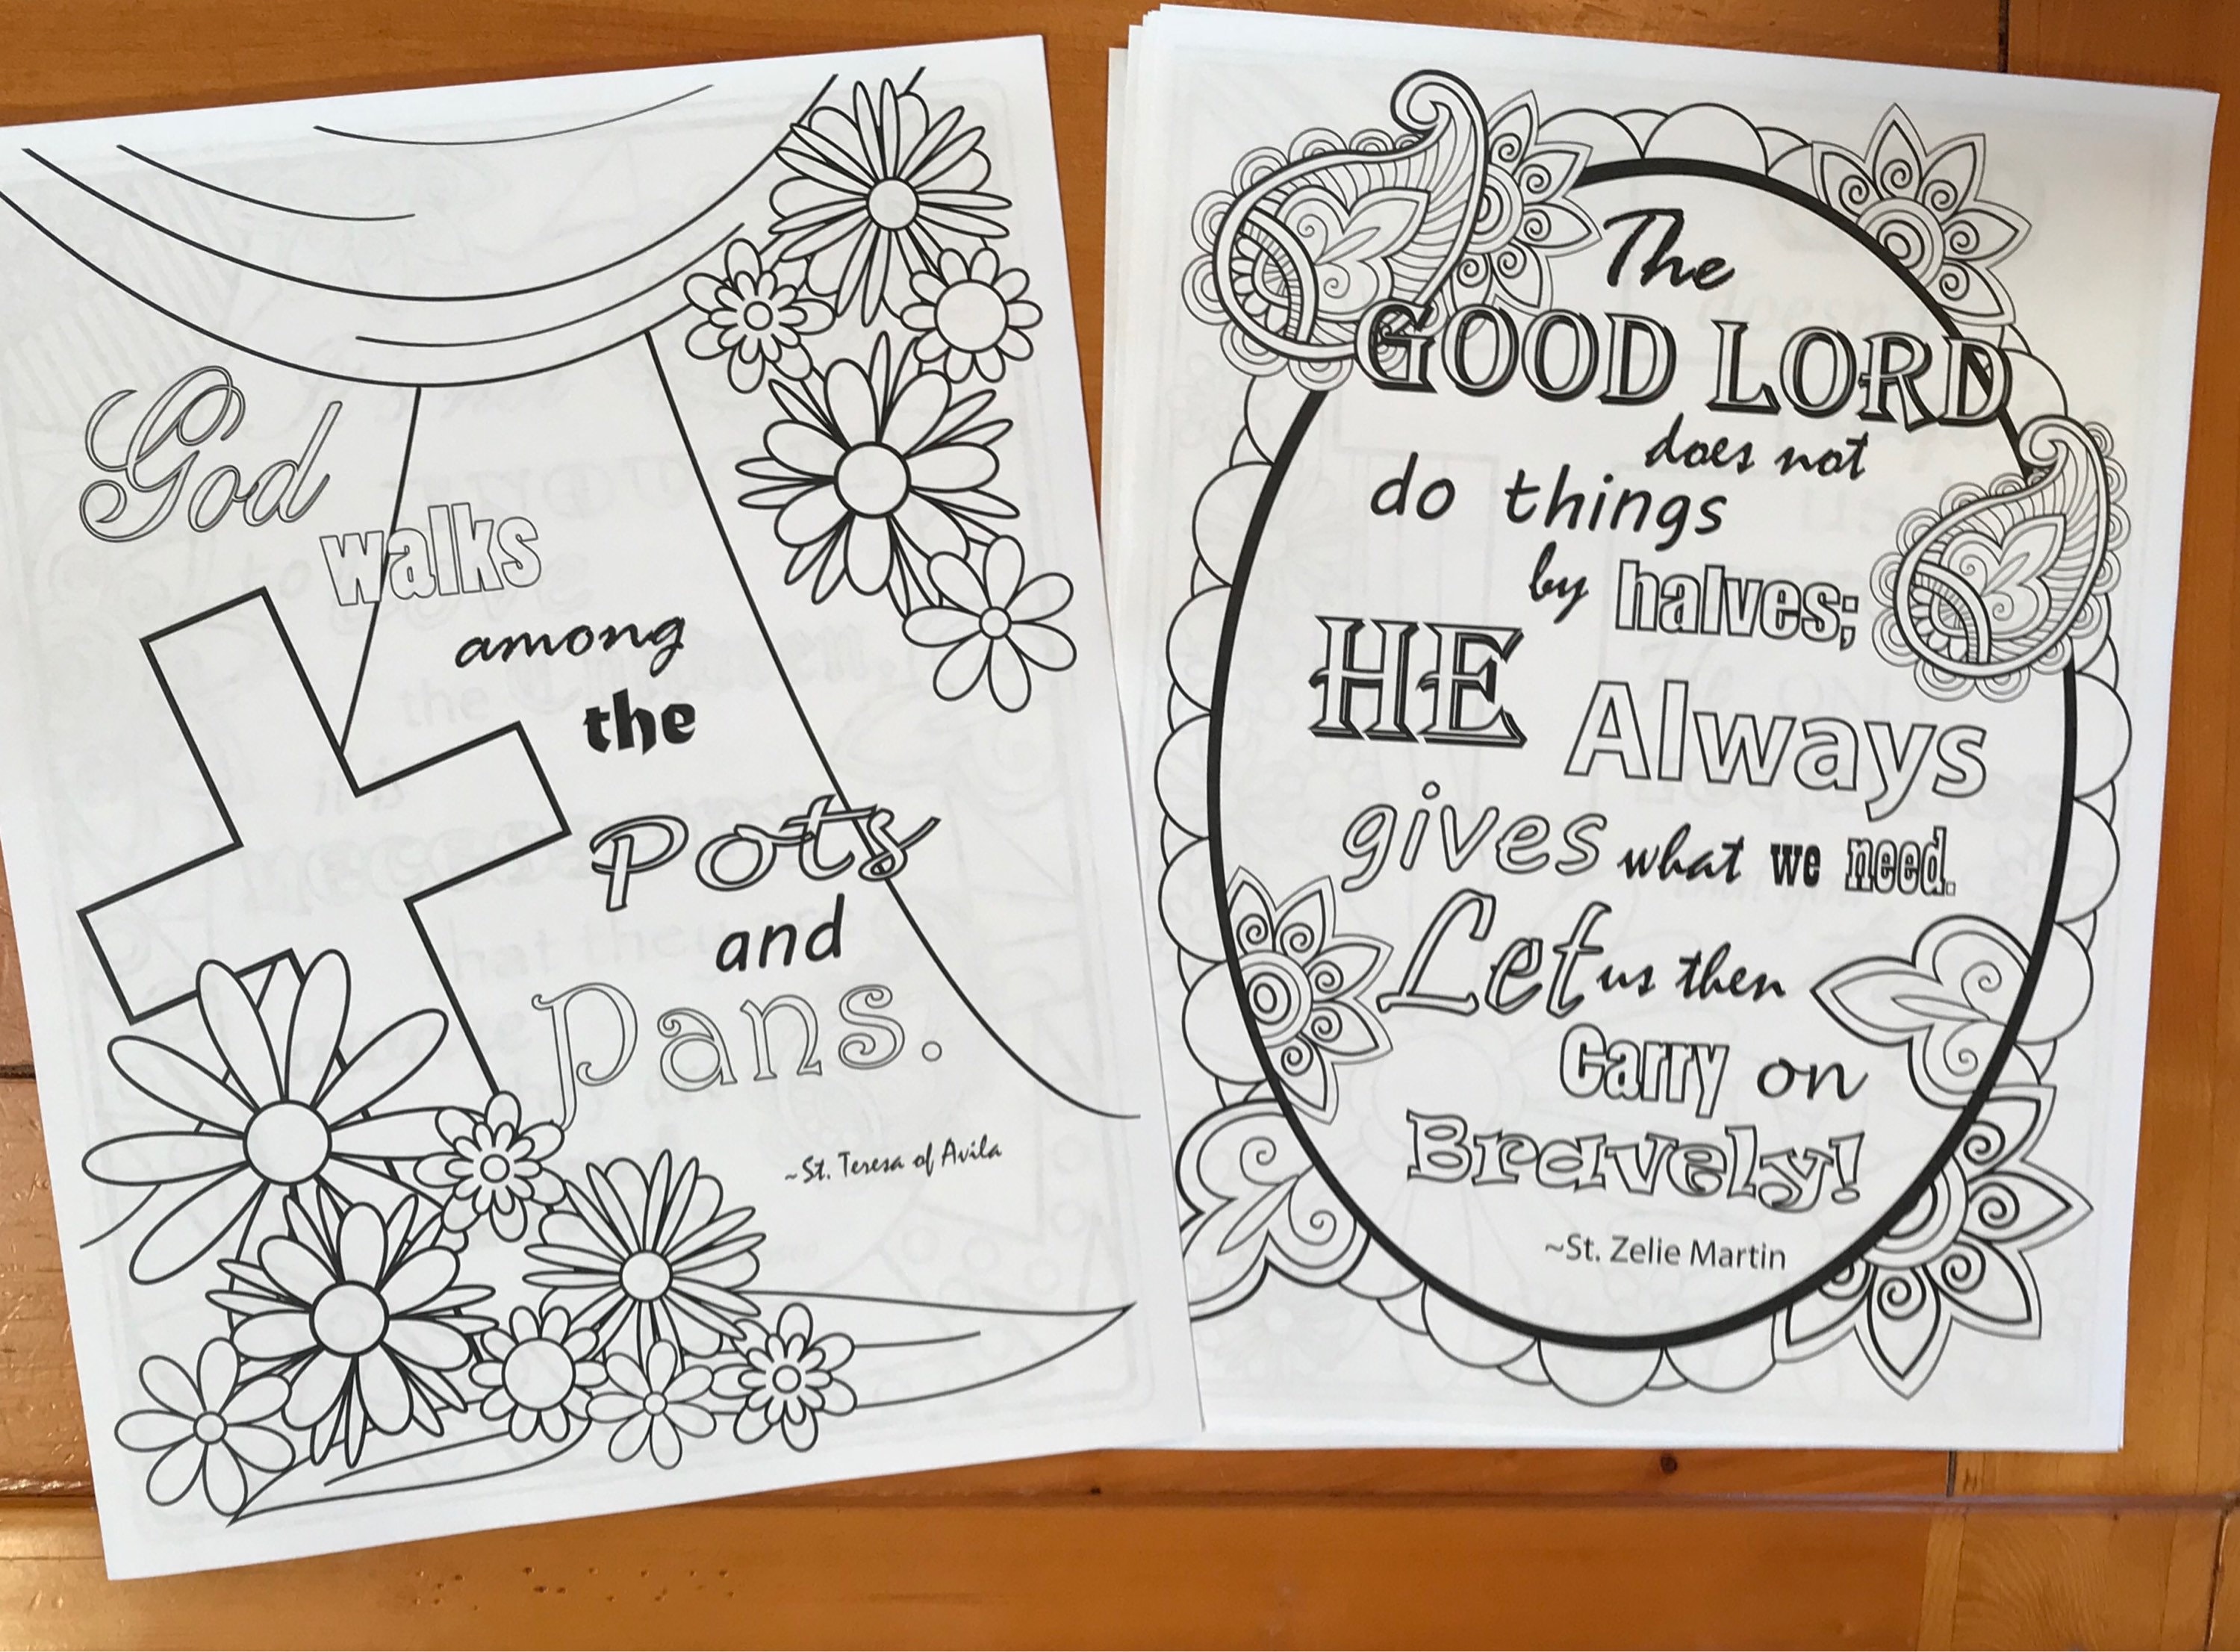 God
walks
among
the
Pots
and
Pans.
~St. Teresa of Avila
The
GOOD LORD
does not
do things
by halves;
HE Always
gives what we need.
Let us then
Carry on
Bravely!
~St. Zelie Martin